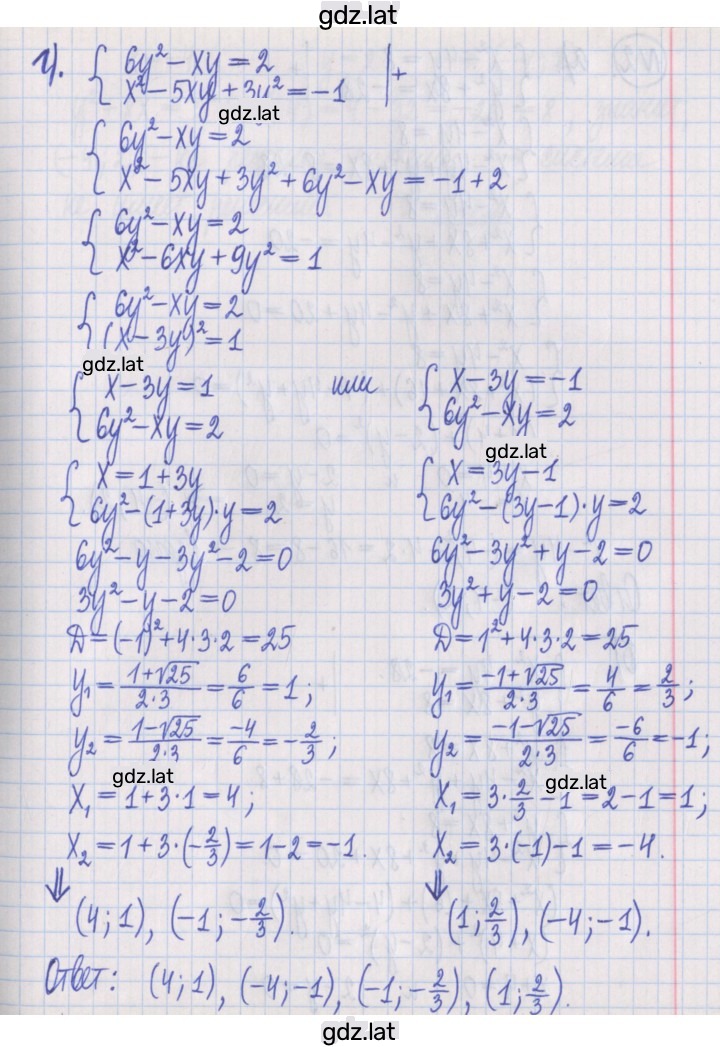 gdz.lat
г). { 6y² − xy = 2 | +
x² − 5xy + 3y² = −1
gdz.lat
{ 6y² − xy = 2
x² − 5xy + 3y² + 6y² − xy = −1 + 2
{ 6y² − xy = 2
x² − 6xy + 9y² = 1
{ 6y² − xy = 2
(x − 3y)² = 1
gdz.lat
{ x − 3y = 1
6y² − xy = 2
или
{ x − 3y = −1
6y² − xy = 2
gdz.lat
{ x = 1 + 3y
6y² − (1 + 3y) · y = 2
6y² − y − 3y² − 2 = 0
3y² − y − 2 = 0
D = (−1)² + 4·3·2 = 25
y₁ = (1+√25)/(2·3) = 6/6 = 1;
y₂ = (1−√25)/(2·3) = −4/6 = −2/3;
gdz.lat
x₁ = 1 + 3·1 = 4;
x₂ = 1 + 3·(−2/3) = 1 − 2 = −1.
⇓
(4; 1), (−1; −2/3).
{ x = 3y − 1
6y² − (3y − 1) · y = 2
6y² − 3y² + y − 2 = 0
3y² + y − 2 = 0
D = 1² + 4·3·2 = 25
y₁ = (−1+√25)/(2·3) = 4/6 = 2/3;
y₂ = (−1−√25)/(2·3) = −6/6 = −1;
gdz.lat
x₁ = 3·2/3 − 1 = 2 − 1 = 1;
x₂ = 3·(−1) − 1 = −4.
⇓
(1; 2/3), (−4; −1).
Ответ: (4; 1), (−4; −1), (−1; −2/3), (1; 2/3).
gdz.lat